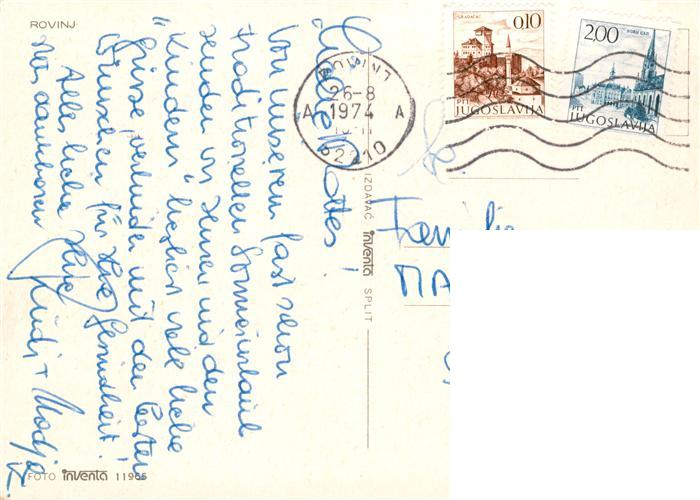 ROVINJ
Von unserem fast schon
traditionellen Sommerurlaub
senden wir Ihnen und den
"Kindern" herzlich viele liebe
Grüsse, verbunden mit den besten
Wünschen für Ihre Gesundheit!
Alles liebe Ihre
dankbaren
Rudi +
FOTO inventa 11965
IZDAVAČ inventa SPLIT
26-8
1974
A A
52210
GRADAČAC
0,10
PTT
JUGOSLAVIJA
2,00
PTT
JUGOSLAVIJA
Familie
MA